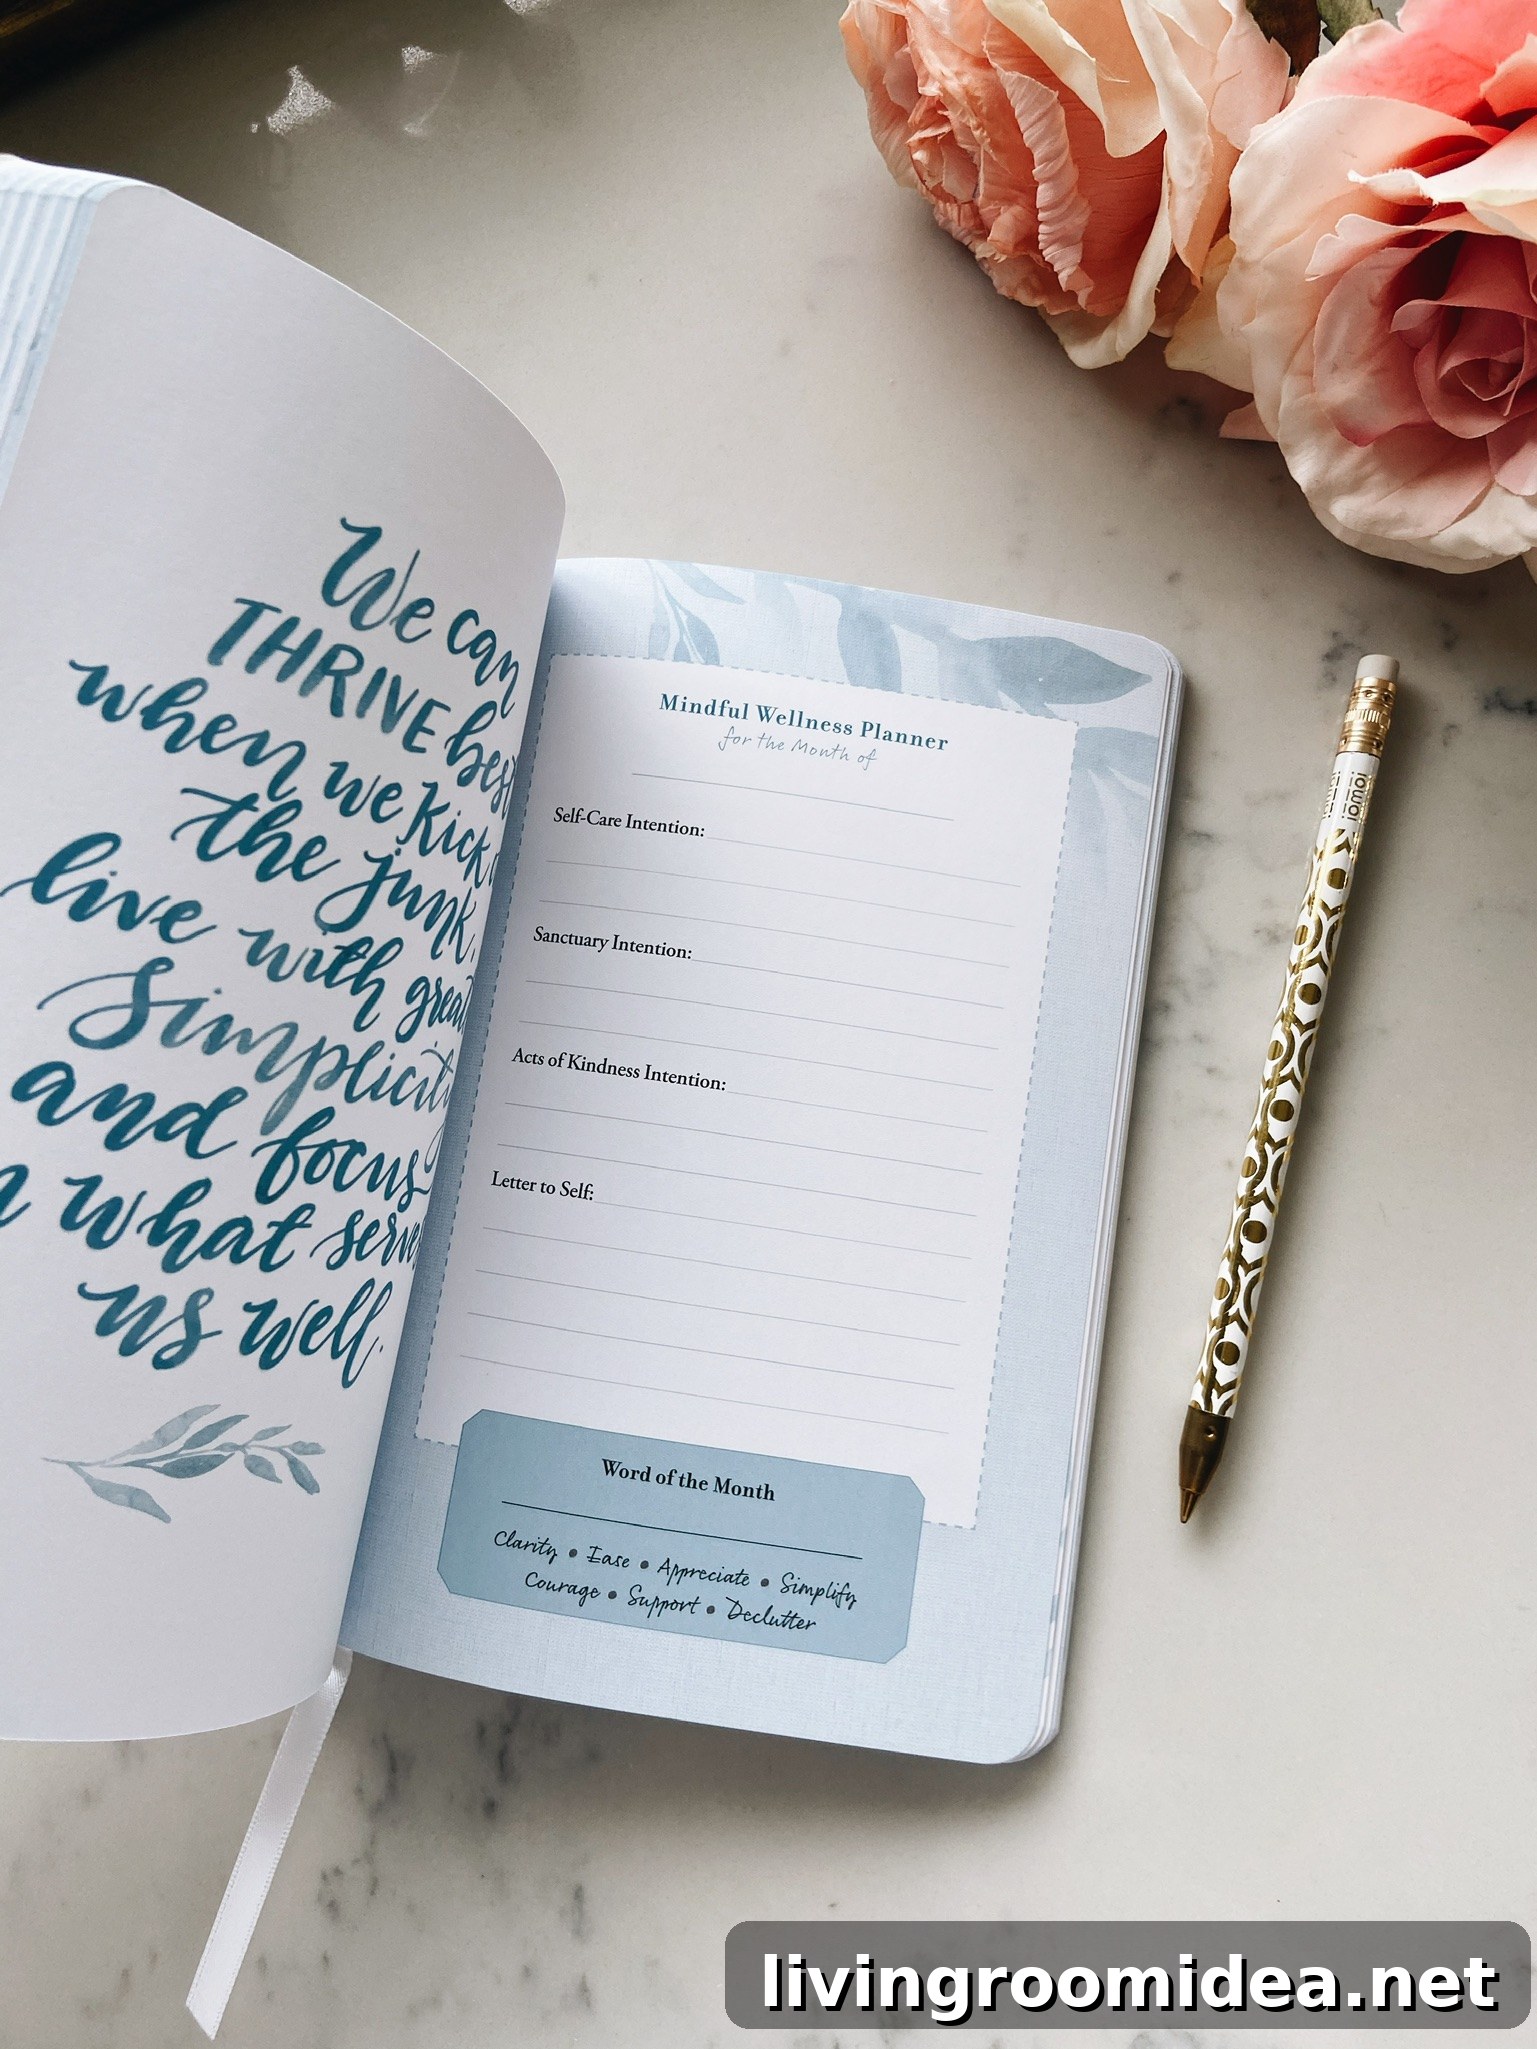 We can
THRIVE best
when we kick
the junk,
live with great
Simplicity
and focus
what serves
us well.
Mindful Wellness Planner
for the Month of
Self-Care Intention:
Sanctuary Intention:
Acts of Kindness Intention:
Letter to Self:
Word of the Month
Clarity • Ease • Appreciate • Simplify
Courage • Support • Declutter
livingroomidea.net